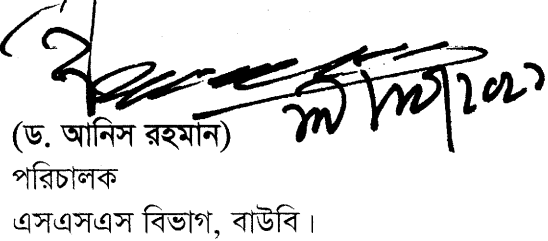 (ড. আনিস রহমান)
পরিচালক
এসএসএস বিভাগ, বাউবি।